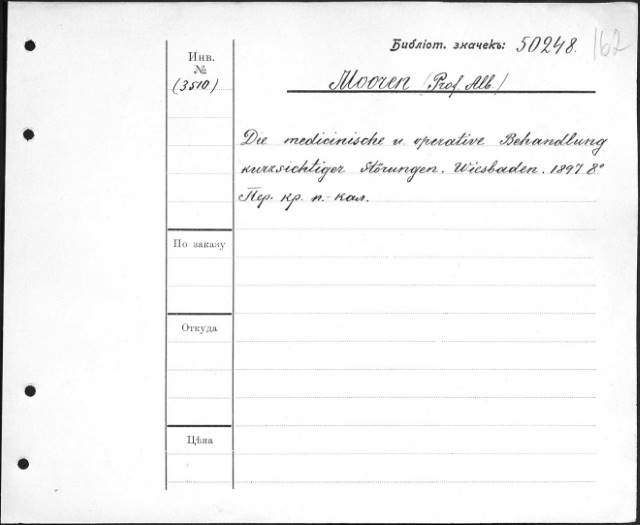 Библіот. значекъ: 50248. 162
Инв.
№
(3510)
Mooren (Prof Alb.)
Die medicinische u. operative Behandlung
kurzsichtiger Störungen. Wiesbaden. 1897 8º
Пер. кр. п.-кал.
По заказу
Откуда
Цѣна